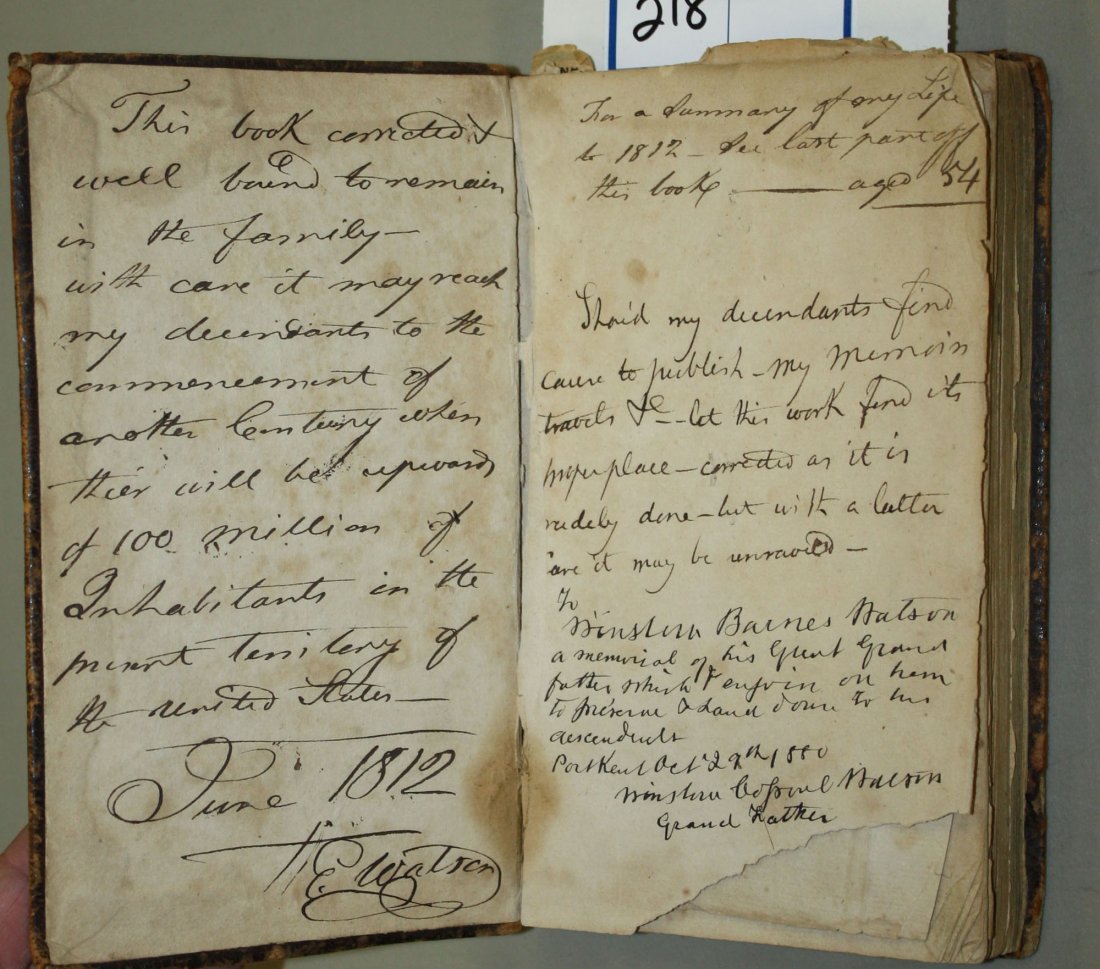 218
This book corrected &
well bound to remain
in the family—
with care it may reach
my decendants to the
commencement of
another Century when
thier will be upwards
of 100 million of
Inhabitants in the
present territory of
the United States—
June 1812
E Watson
For a Summary of my Life
to 1812 — See last part of
this book —— aged 54
Shou'd my decendants find
cause to publish — my Memoirs
travels &c — let this work find its
proper place — corrected as it is
rudely done — but with a latter
are it may be unraveled —
To
Winslow Barnes Watson
a memorial of his Great Grand
father which I enjoin on him
to preserve & hand down to his
descendents
Port Kent Oct 1880
Winslow Cossoul Watson
Grand Father